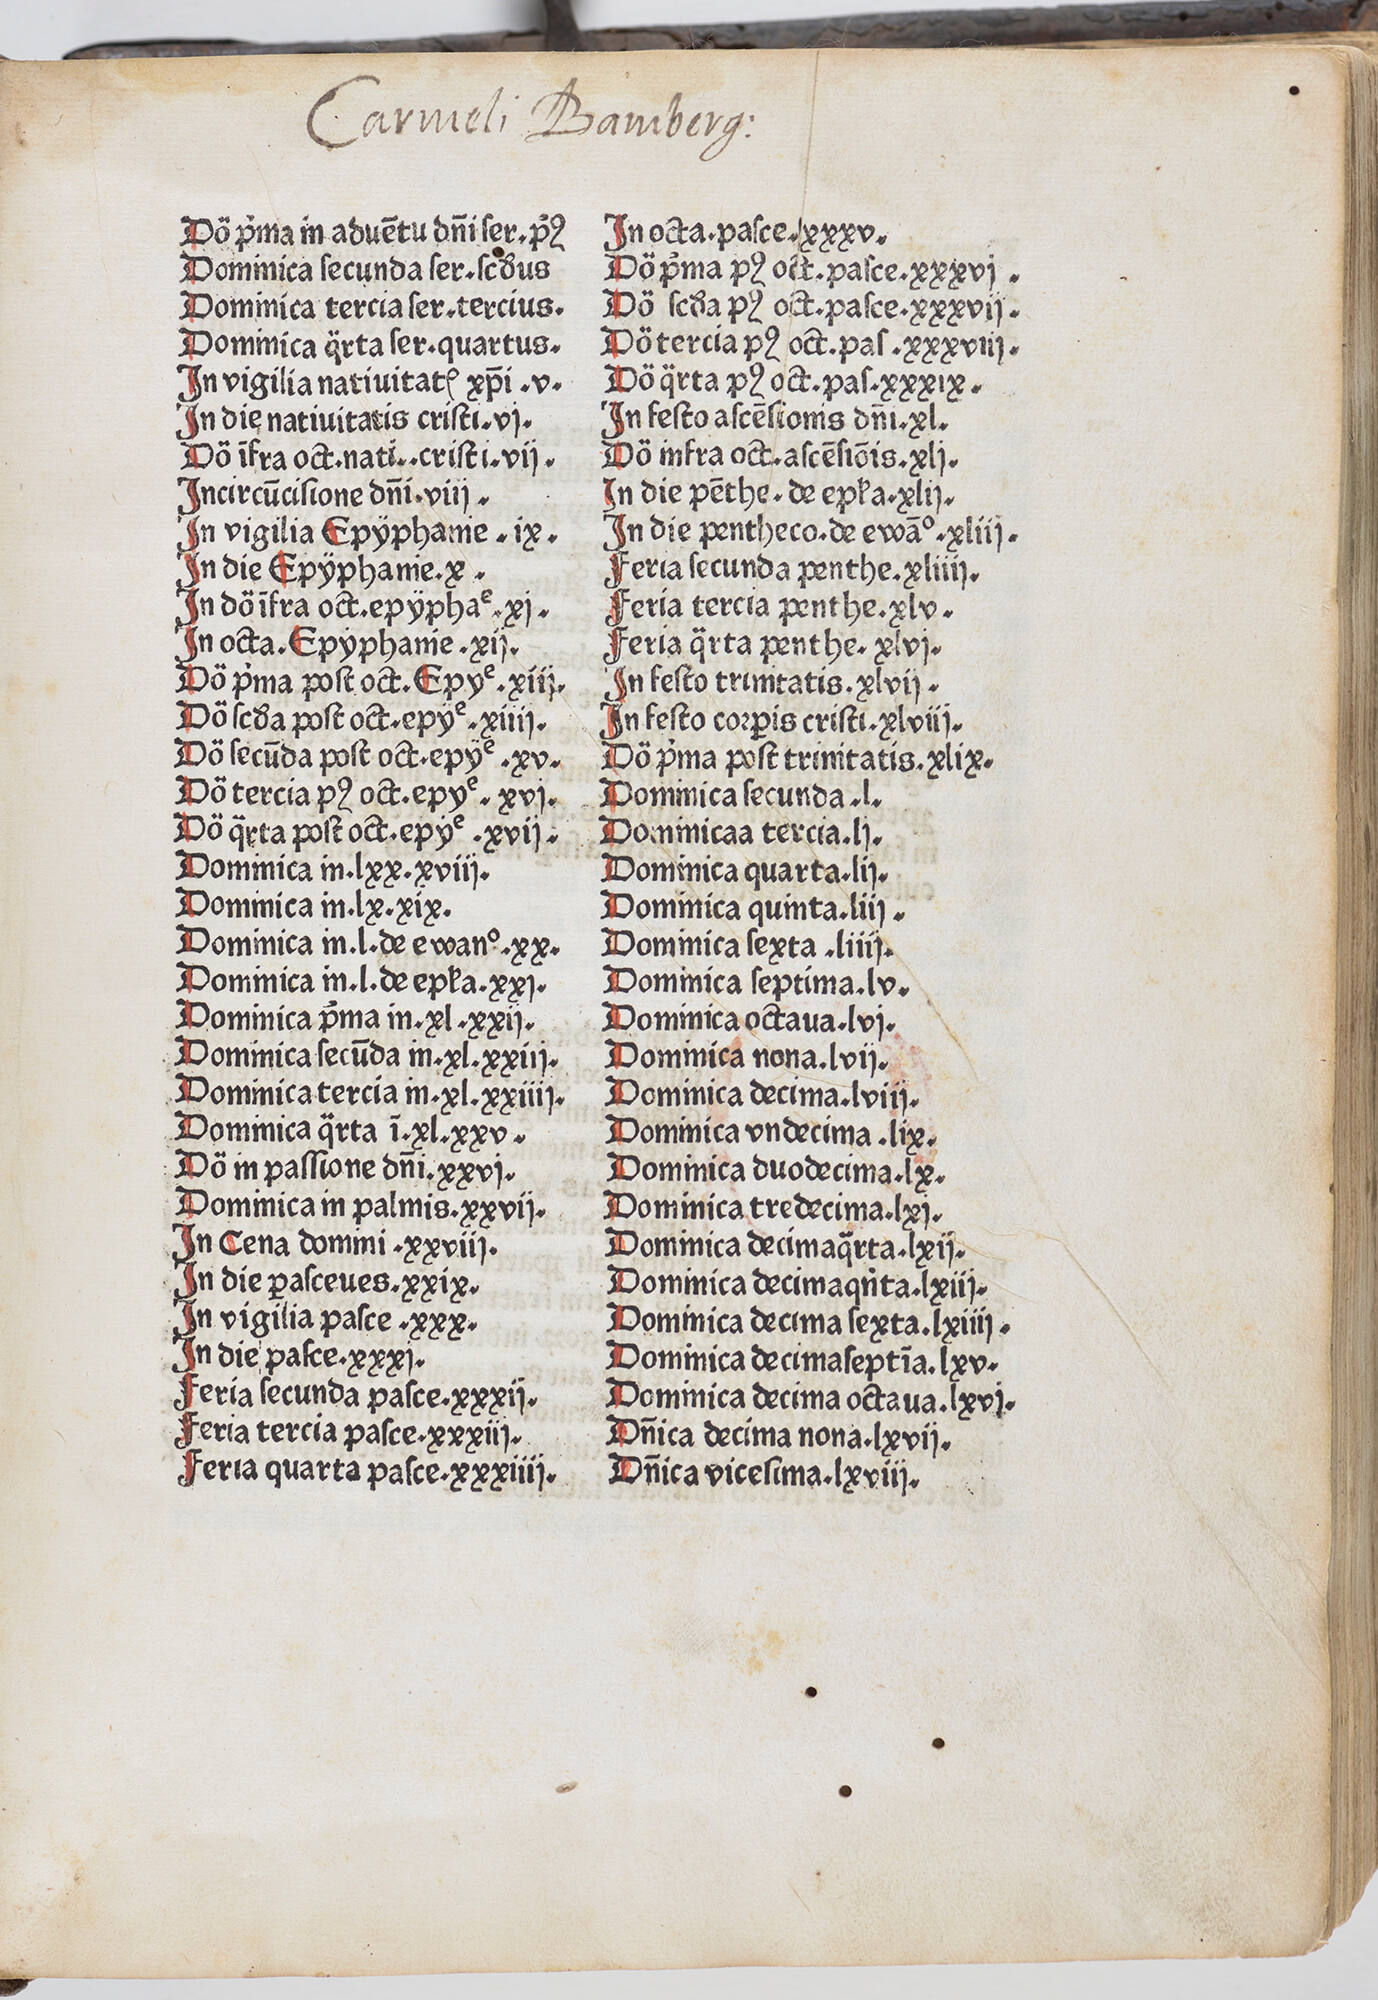 Carmeli Bamberg:
Dō p̉ma in aduētu dn̄i ser. p̉ꝰ
Dominica secunda ser. scđus
Dominica tercia ser. tercius.
Dominica q̈rta ser. quartus.
In vigilia natiuitatꝭ xp̄i .v.
In die natiuitatis cristi. vj.
Dō īfra oct. nati. .cristi. vij .
Incircūcisione dn̄i. viij .
In vigilia Epÿphanie . ix.
In die Epÿphanie. x .
In dō īfra oct. epÿphaᵉ. xj.
In octa. Epÿphanie .xij.
Dō p̉ma post oct. Epyᵉ. xiij.
Dō scđa post oct. epÿᵉ. xiiij.
Dō secūda post oct. epÿᵉ .xv.
Dō tercia pꝰ oct. epyᵉ. xvj.
Dō q̈rta post oct. epÿᵉ .xvij.
Dominica in. lxx. xviij.
Dominica in. lx. xix.
Dominica in. l. de ewanº. xx.
Dominica in. l. de epľa. xxj.
Dominica p̉ma in. xl .xxij.
Dominica secūda in. xl. xxiij.
Dominica tercia in. xl. xxiiij.
Dominica q̈rta ī. xl. xxv .
Dō in passione dn̄i. xxvj.
Dominica in palmis. xxvij.
In Cena domini .xxviij.
In die ꝑasceues. xxix.
In vigilia pasce .xxx.
In die pasce. xxxj.
Feria secunda pasce. xxxij.
Feria tercia pasce. xxxiij.
Feria quarta pasce. xxxiiij.
In octa. pasce. xxxv.
Dō p̉ma pꝰ oct. pasce. xxxvj .
Dō scđa pꝰ oct. pasce. xxxvij.
Dō tercia pꝰ oct. pas .xxxviij.
Dō q̈rta pꝰ oct. pas. xxxix.
In festo ascēsionis dn̄i. xl.
Dō infra oct. ascēsiōis. xlj.
In die pēthe. de epľa. xlij.
In die pentheco. de ewāº. xliij.
Feria secunda penthe. xliiij.
Feria tercia penthe. xlv.
Feria q̈rta penthe. xlvj.
In festo trinitatis. xlvij .
In festo corꝑis cristi. xlviij.
Dō p̉ma post trinitatis. xlix.
Dominica secunda .l.
Dominicaa tercia. lj.
Dominica quarta. lij.
Dominica quinta. liij .
Dominica sexta .liiij.
Dominica septima. lv.
Dominica octaua. lvj.
Dominica nona. lvij.
Dominica decima. lviij.
Dominica vndecima .lix.
Dominica duodecima. lx.
Dominica tredecima. lxj.
Dominica decimaq̈rta. lxij.
Dominica decimaqn̉ta. lxiij.
Dominica decima sexta. lxiiij .
Dominica decimaseptīa. lxv.
Dominica decima octaua. lxvj.
Dn̄ica decima nona. lxvij.
Dn̄ica vicesima. lxviij.